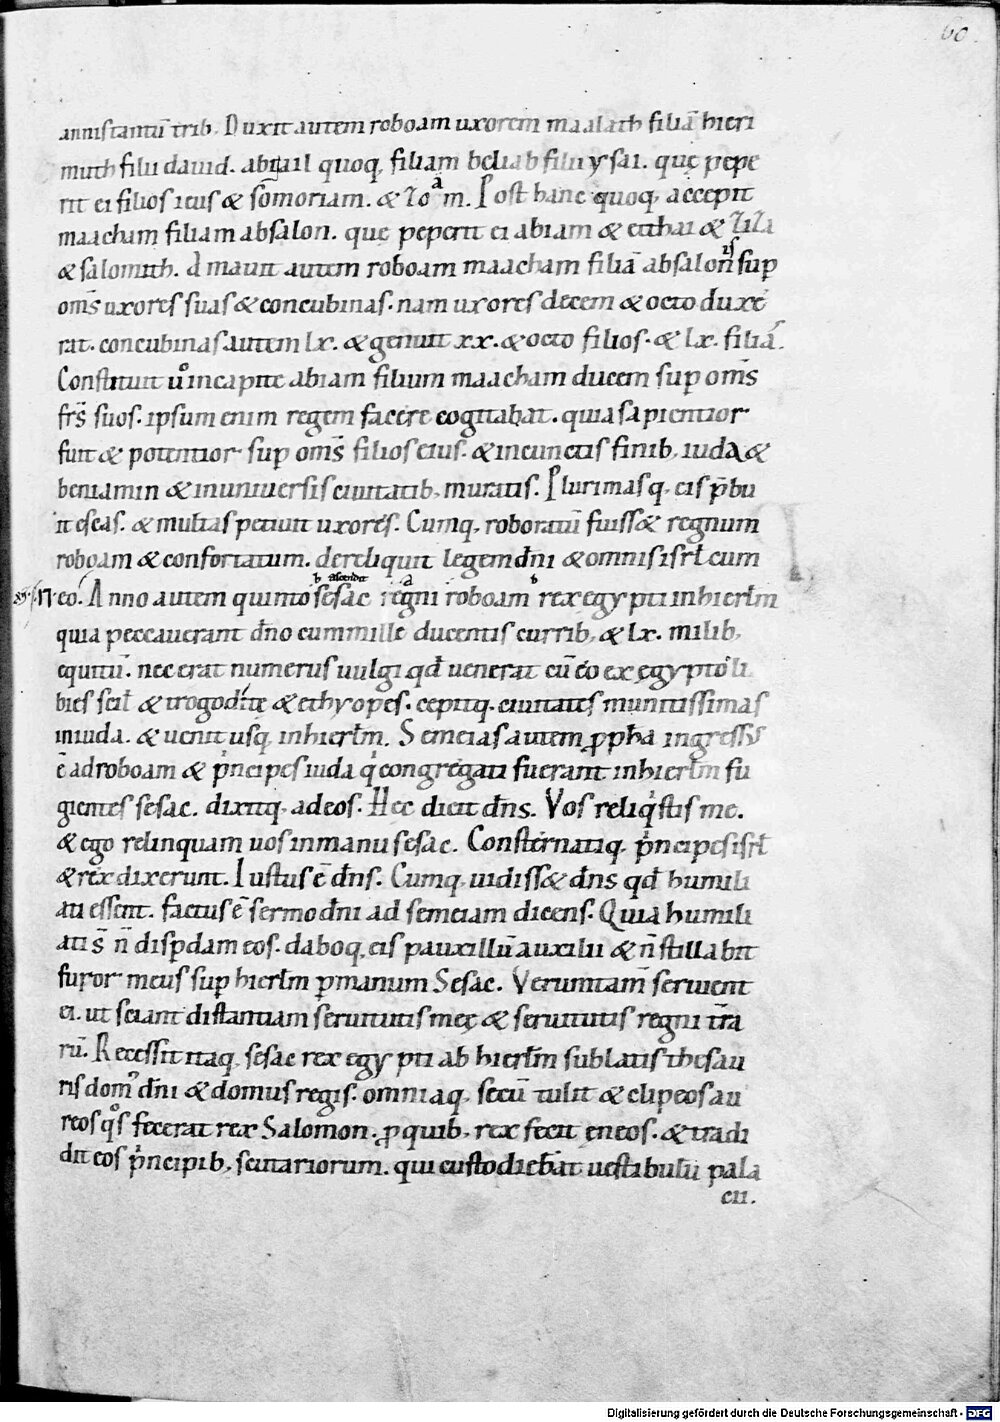 60
annistantū trib. Duxit autem roboam uxorem maalath filiā hieri
muth filii dauid. abigail quoq, filiam heliab filii ysai. quę pepe
rit ei filios ieus & somoriam. & zoām. Post hanc quoq, accepit
maacham filiam absalon. quę peperit ei abiam & ethai & ziza
& salomith. Amauit autem roboam maacham filiā absalonis sup
om̄s uxores suas & concubinas. nam uxores decem & octo duxe
rat. concubinas autem lx. & genuit xx. & octo filios. & lx. filias.
Constituit u° in capite abiam filium maacham ducem sup om̄s
fr̄s suos. ipsum enim regem facere cogitabat. quia sapientior
fuit & potentior sup om̄s filios eius. & in cunctis finib, iuda &
beniamin & in uniuersis ciuitatib, muratis. Plurimasq, eis p̄bu
it escas. & multas petiuit uxores. Cumq, roboratū fuiss& regnum
roboam & confortatum. dereliquit legem dn̄i & omnis isrł cum
eo. Anno autem quinto sesac regni roboam rex egypti in hierłm
ascendit
quia peccauerant dn̄o cum mille ducentis currib, & lx. milib,
equitū. nec erat numerus uulgi qđ uenerat cū eo ex egypto li
bies scił & trogoditę & ethyopes. cepitq, ciuitates munitissimas
in iuda. & uenit usq, in hierłm. Semeias autem ppħa ingressus
ē ad roboam & pncipes iuda qi congregati fuerant in hierłm fu
gientes sesac. dixitq, ad eos. Hec dicit dn̄s. Vos reliqistis me.
& ego relinquam uos in manu sesac. Consternatiq, pncipes isrł
& rex dixerunt. Iustus ē dn̄s. Cumq, uidiss& dn̄s qđ humili
ati essent. factus ē sermo dn̄i ad semeiam dicens. Quia humili
ati s̄ n̄ dispdam eos. daboq, eis pauxillū auxilii & n̄ stillabit
furor meus sup hierłm p manum Sesac. Verumtam̄ seruient
ei. ut sciant distantiam seruitutis meę & seruitutis regni t̄ra
rū. Recessit itaq, sesac rex egypti ab hierłm sublatis thesau
ris dom' dn̄i & domus regis. omniaq, secū tulit & clipeos au
reos qos fecerat rex Salomon. p quib, rex fecit ęneos. & tradi
dit eos pncipib, scutariorum. qui custodiebāt uestibulū pala
cii.
Digitalisierung gefördert durch die Deutsche Forschungsgemeinschaft - DFG